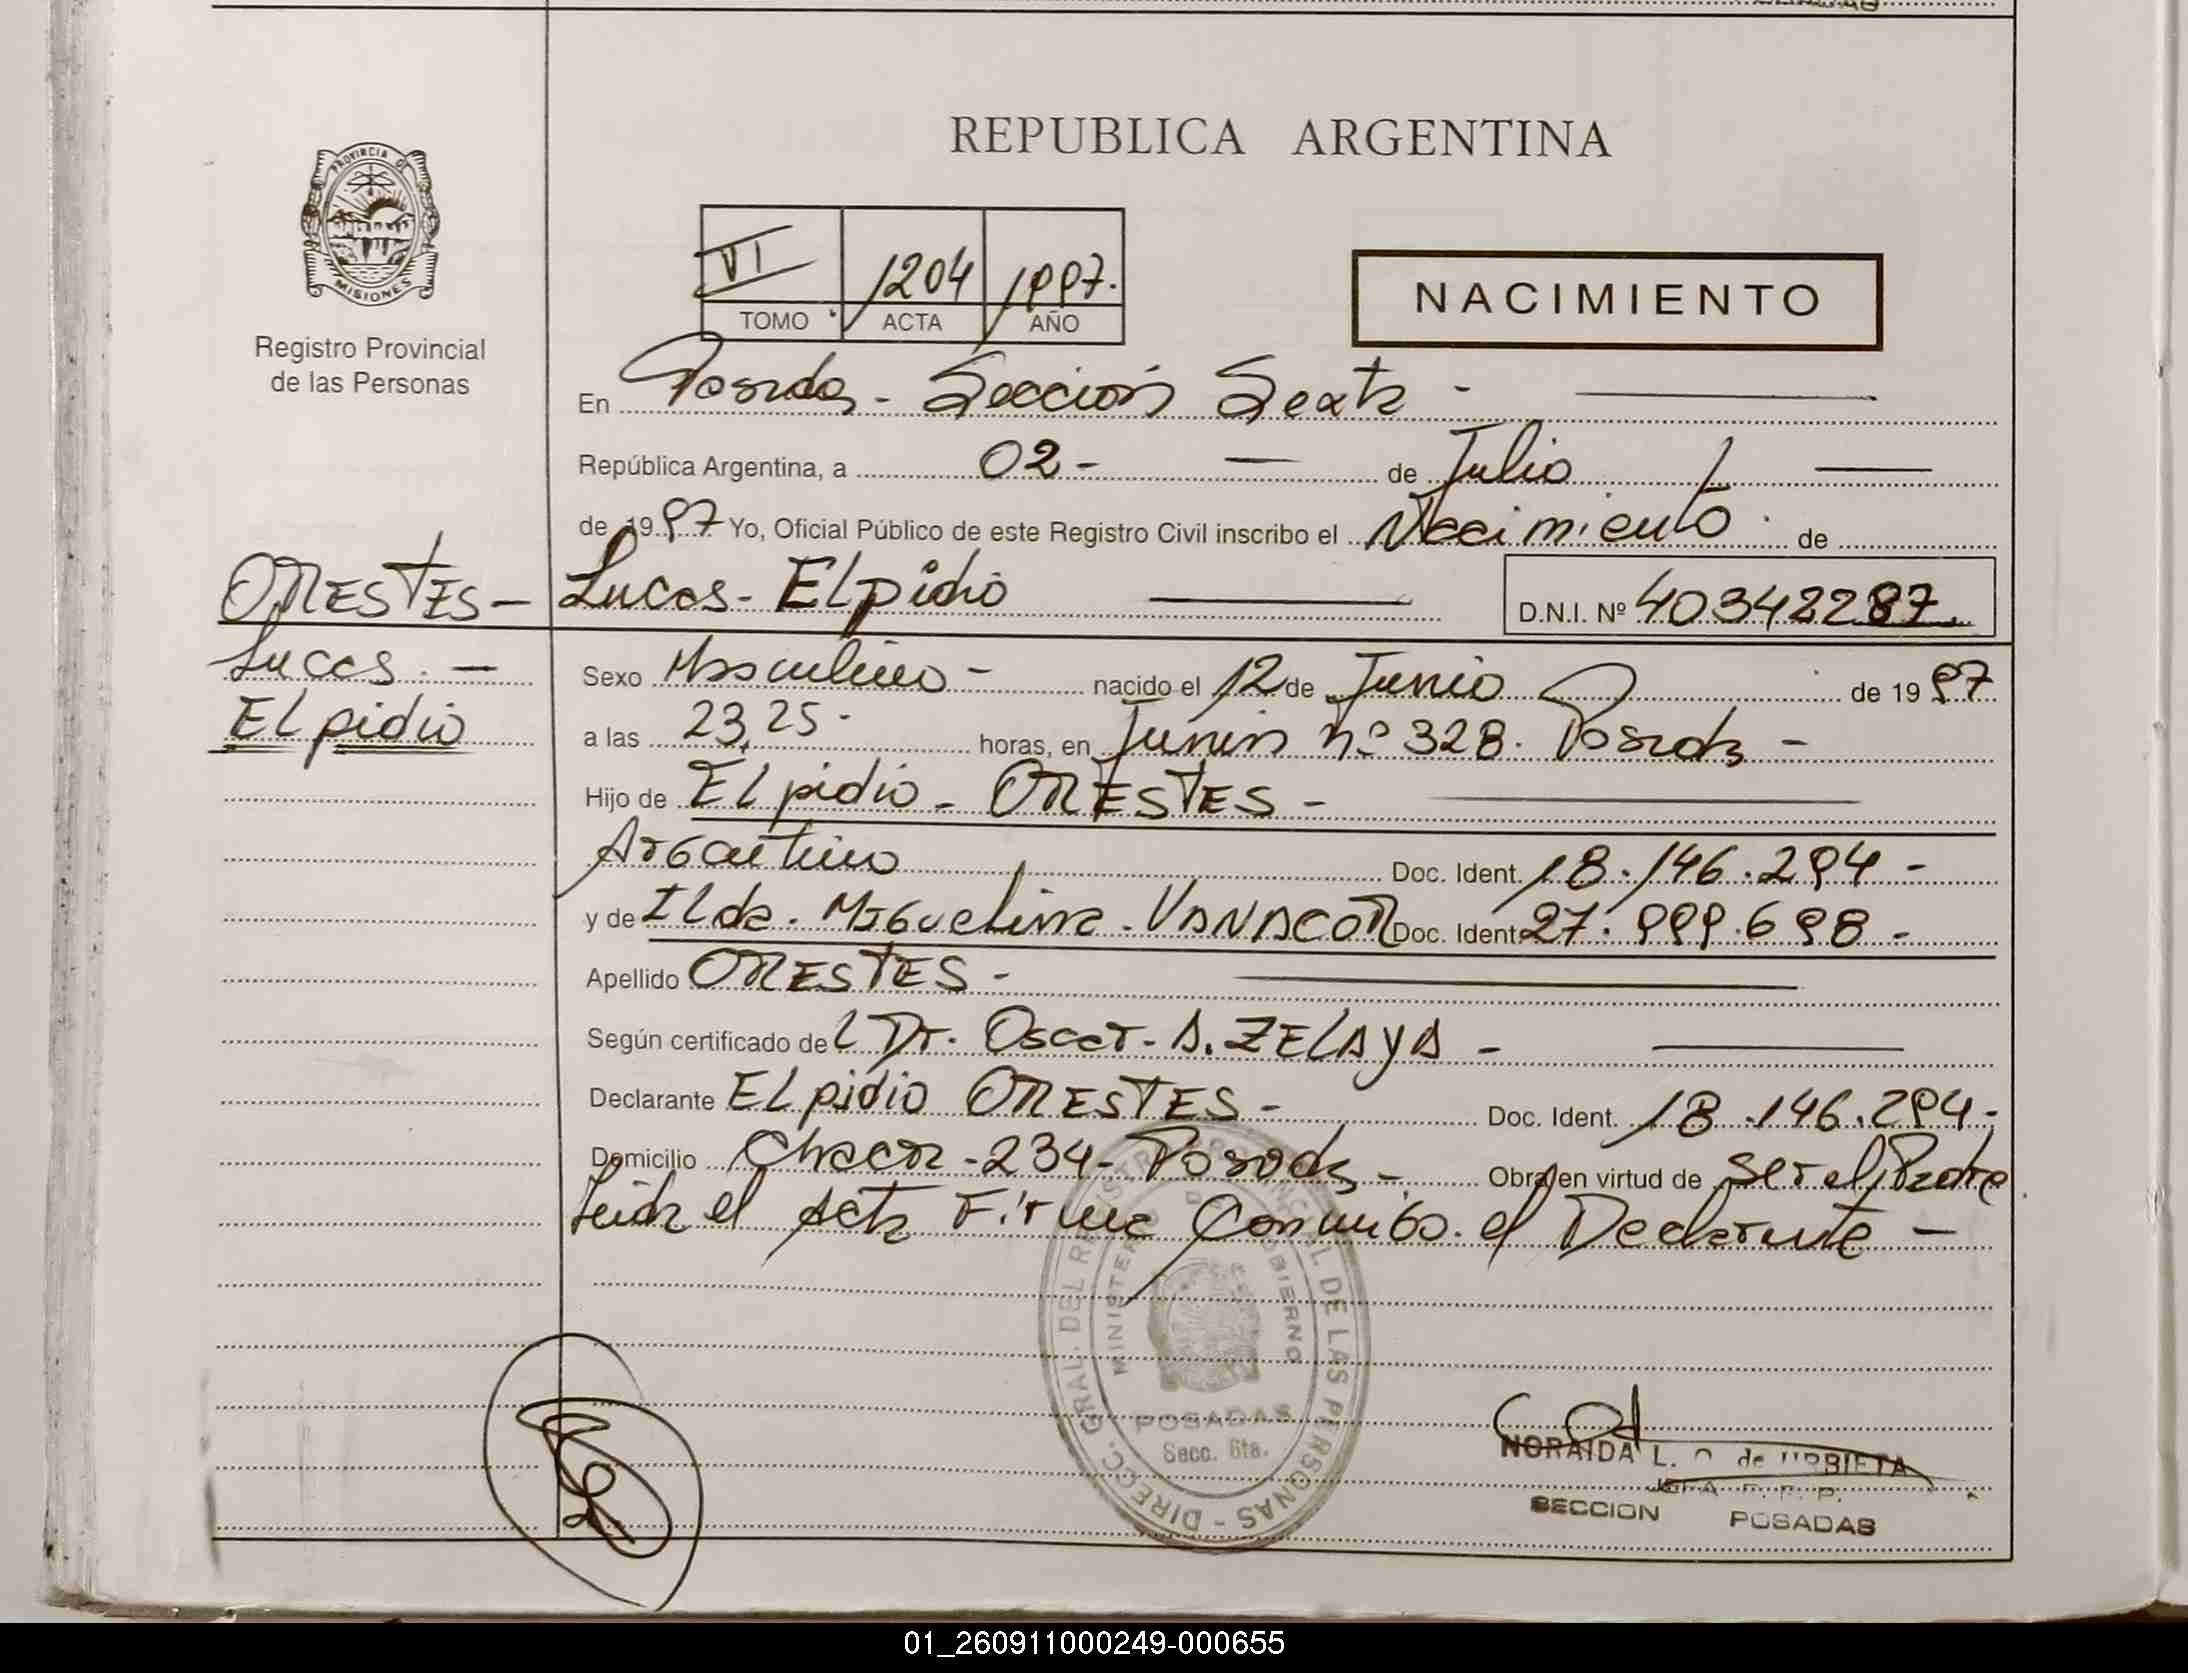 REPUBLICA ARGENTINA
PROVINCIA DE
MISIONES
Registro Provincial
de las Personas
VI 1204 1997.
TOMO ACTA AÑO
NACIMIENTO
En Posadas - Sección Sexta -
República Argentina, a 02 - de Julio
de 1997 Yo, Oficial Público de este Registro Civil inscribo el Nacimiento de
ORESTES - Lucas - Elpidio D.N.I. Nº 40342287
Lucas. - Sexo Masculino - nacido el 12 de Junio de 1997
Elpidio a las 23,25 - horas, en Junín Nº 328. Posadas -
Hijo de Elpidio - ORESTES -
Argentino Doc. Ident. 18.146.294 -
y de Ilda - Miguelina - VANACOR Doc. Ident. 27.999.698 -
Apellido ORESTES -
Según certificado del Dr. Oscar - A. ZELAYA -
Declarante Elpidio ORESTES - Doc. Ident. 18.146.294 -
Domicilio - 234 - Posadas - Obra en virtud de ser el Padre
Leída el Acta Firma Conmigo el Declarante -
DIRECC. GRAL. DEL REGISTRO PROVINCIAL DE LAS PERSONAS -
MINISTERIO DE GOBIERNO
POSADAS
Secc. 6ta.
NORAIDA L. de URBIETA
JEFA
SECCION POSADAS
01_260911000249-000655